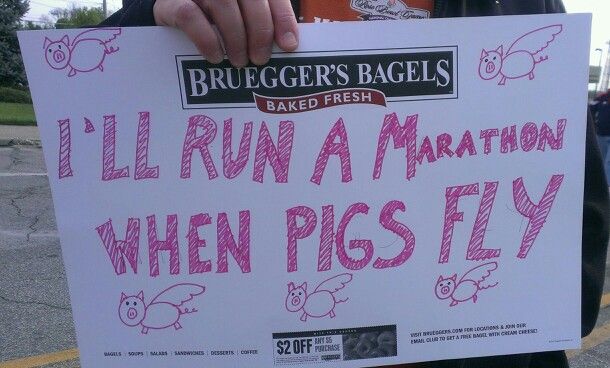 BRUEGGER'S BAGELS
BAKED FRESH
I'LL RUN A MARATHON
WHEN PIGS FLY
BAGELS | SOUPS | SALADS | SANDWICHES | DESSERTS | COFFEE
WITH THIS COUPON
$2 OFF ANY $5 PURCHASE
VISIT BRUEGGERS.COM FOR LOCATIONS & JOIN OUR
EMAIL CLUB TO GET A FREE BAGEL WITH CREAM CHEESE!